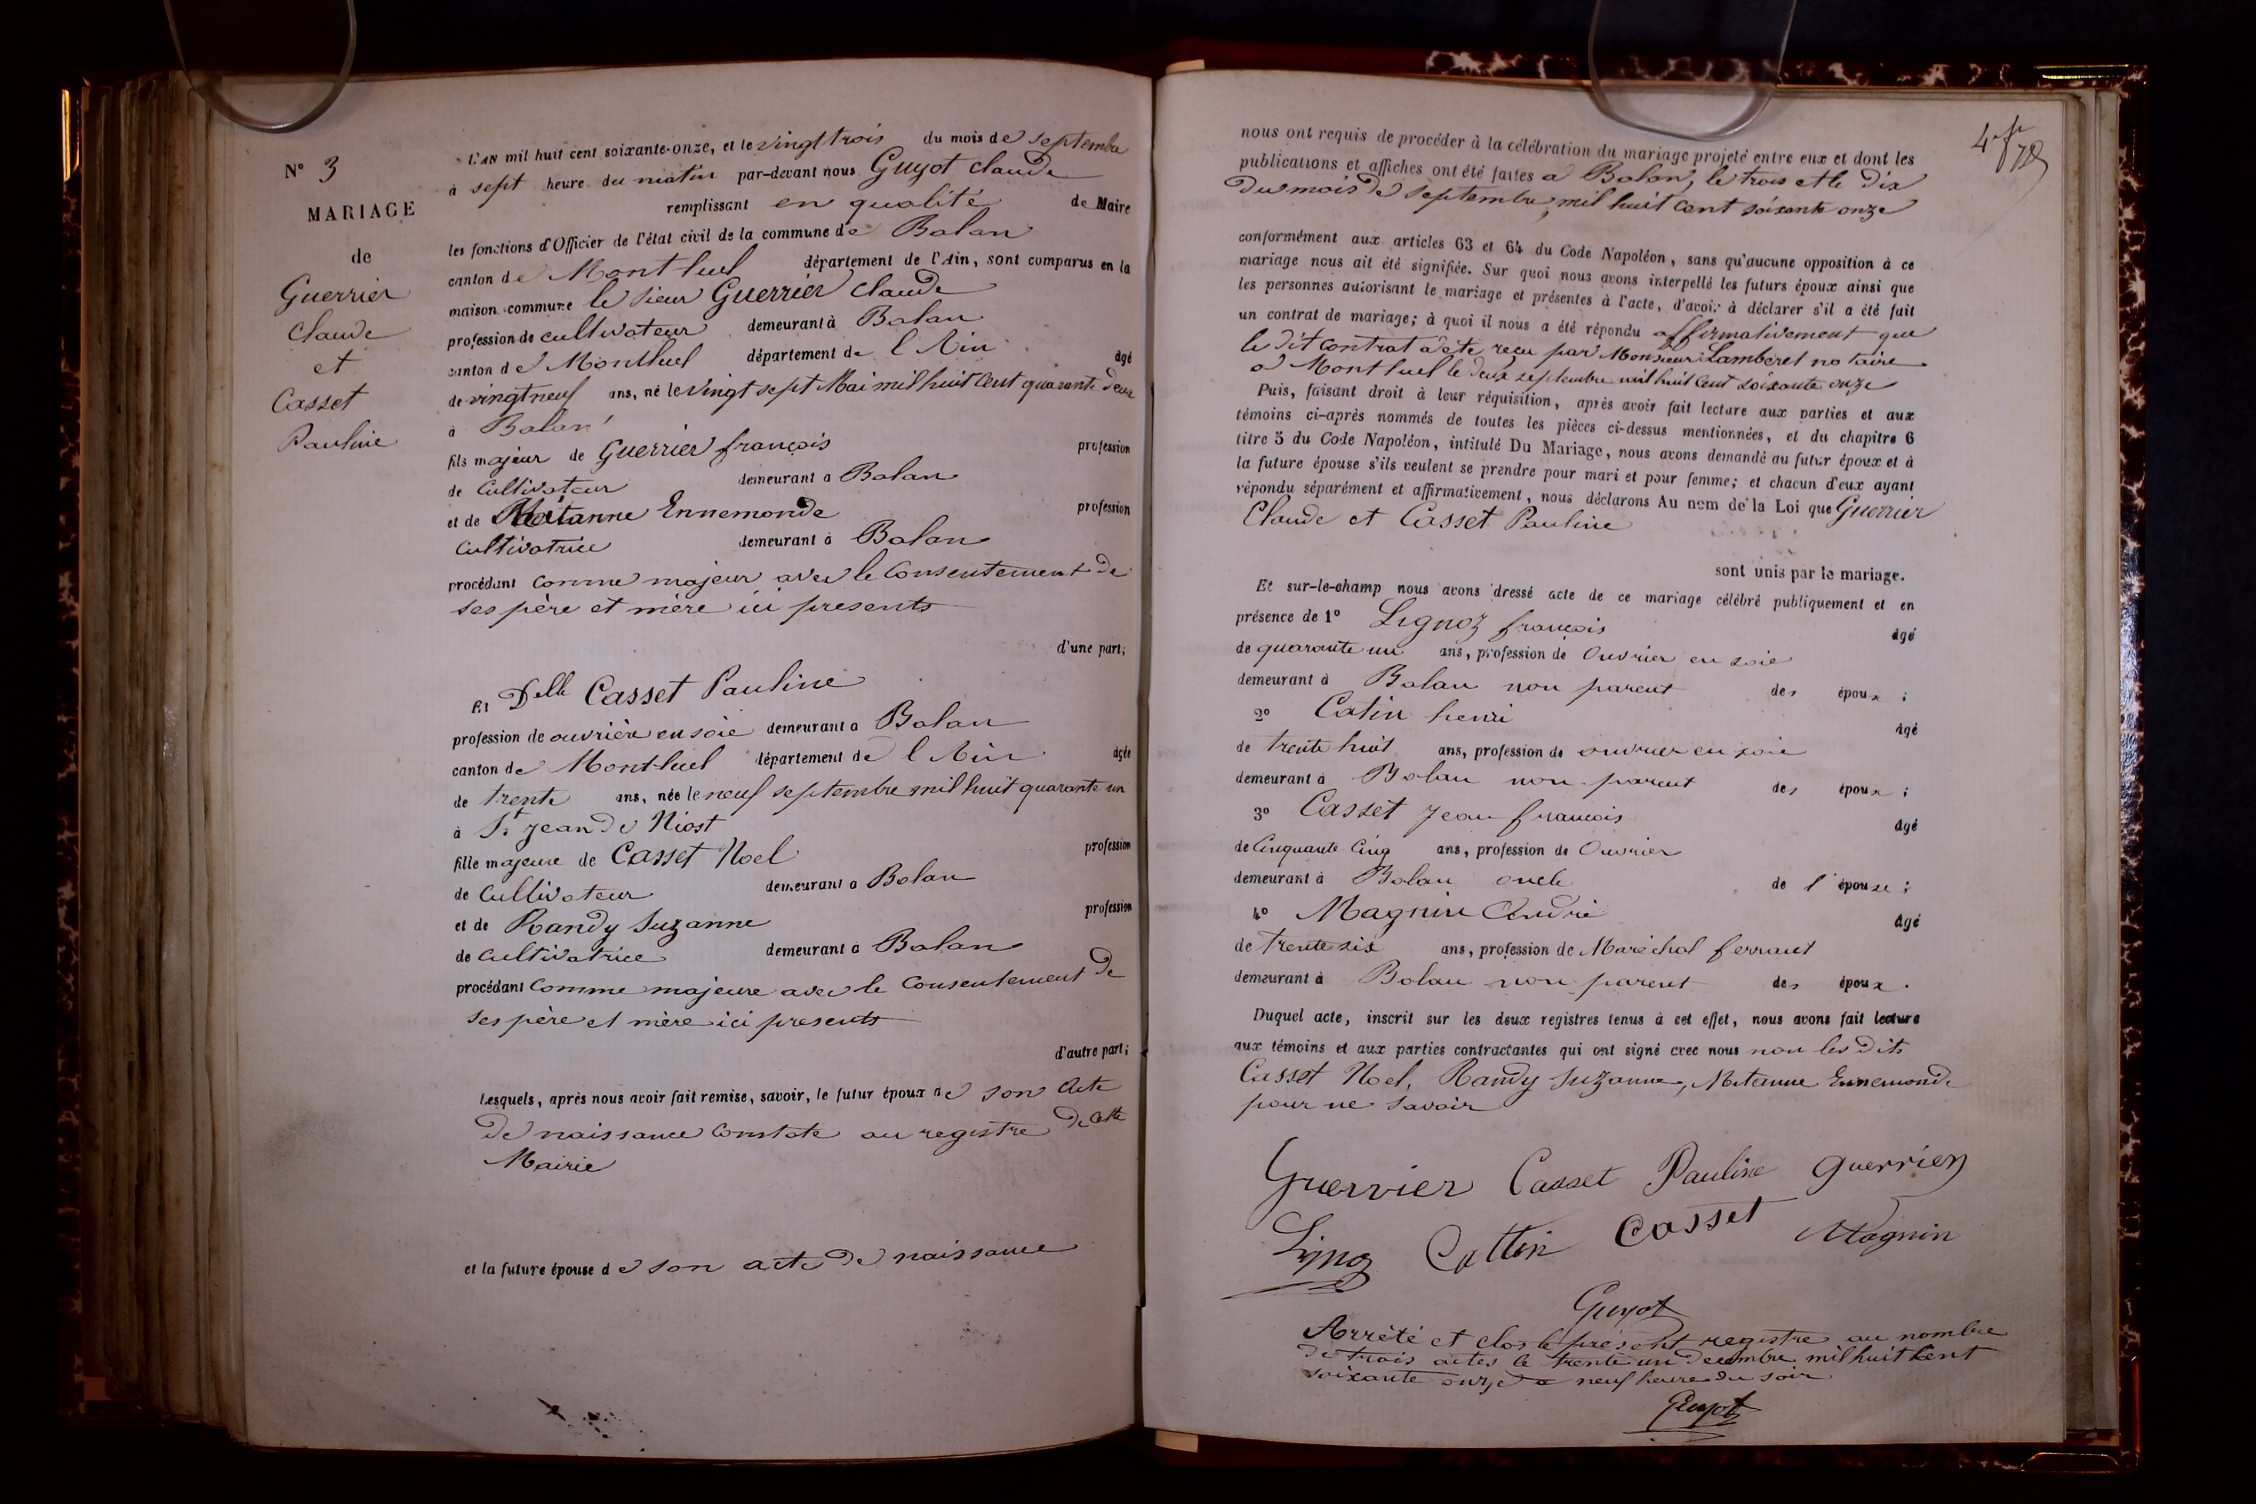 N° 3
MARIAGE
de
Guerrier
Claude
et
Casset
Pauline
L'AN mil huit cent soixante-onze, et le vingt trois du mois de septembre
à sept heure du matin par-devant nous Guyot Claude
remplissant en qualité de Maire
les fonctions d'Officier de l'état civil de la commune de Balan
canton de Montluel département de l'Ain, sont comparus en la
maison commune le sieur Guerrier Claude
profession de cultivateur demeurant à Balan
canton de Montluel département de l'Ain âgé
de vingt neuf ans, né le vingt sept Mai mil huit cent quarante deux
à Balan
fils majeur de Guerrier françois profession
de Cultivateur demeurant à Balan
et de Mitanne Ennemonde profession
Cultivatrice demeurant à Balan
procédant comme majeur avec le Consentement de
ses père et mère ici presents
d'une part;
Et Delle Casset Pauline
profession de ouvrière en soie demeurant à Balan
canton de Montluel département de l'Ain âgée
de trente ans, née le neuf septembre mil huit quarante un
à St jean de Niost
fille majeure de Casset Noel profession
de Cultivateur demeurant à Balan
et de Randy Suzanne profession
de Cultivatrice demeurant à Balan
procédant Comme majeure avec le Consentement de
ses père et mère ici presents
d'autre part;
Lesquels, après nous avoir fait remise, savoir, le futur époux de son Acte
de naissance Constate au registre de Cette
Mairie
et la future épouse de son acte de naissance
nous ont requis de procéder à la célébration du mariage projeté entre eux et dont les
publications et affiches ont été faites à Balan, le trois et le dix
du mois de septembre, mil huit cent soixante onze
conformément aux articles 63 et 64 du Code Napoléon, sans qu'aucune opposition à ce
mariage nous ait été signifiée. Sur quoi nous avons interpellé les futurs époux ainsi que
les personnes autorisant le mariage et présentes à l'acte, d'avoir à déclarer s'il a été fait
un contrat de mariage; à quoi il nous a été répondu affirmativement que
le dit contrat a été reçu par Monsieur Lamberet notaire
à Montluel le deux septembre mil huit cent soixante onze
Puis, faisant droit à leur réquisition, après avoir fait lecture aux parties et aux
témoins ci-après nommés de toutes les pièces ci-dessus mentionnées, et du chapitre 6
titre 5 du Code Napoléon, intitulé Du Mariage, nous avons demandé au futur époux et à
la future épouse s'ils veulent se prendre pour mari et pour femme; et chacun d'eux ayant
répondu séparément et affirmativement, nous déclarons Au nom de la Loi que Guerrier
Claude et Casset Pauline
sont unis par le mariage.
Et sur-le-champ nous avons dressé acte de ce mariage célébré publiquement et en
présence de 1° Lignoz françois âgé
de quarante un ans, profession de Ouvrier en soie
demeurant à Balan non parent des époux;
2° Catin henri âgé
de trente huit ans, profession de ouvrier en soie
demeurant à Balan non parent des époux;
3° Casset Jean françois âgé
de Cinquante Cinq ans, profession de Ouvrier
demeurant à Balan oncle de l'épouse;
4° Magnin André âgé
de trente six ans, profession de Maréchal ferrant
demeurant à Balan non parent des époux.
Duquel acte, inscrit sur les deux registres tenus à cet effet, nous avons fait lecture
aux témoins et aux parties contractantes qui ont signé avec nous non les dits
Casset Noel, Randy Suzanne, Mitanne Ennemonde
pour ne savoir
Guerrier Casset Pauline Guerrier
Ligno Cattin Casset Magnin
Guyot
Arrêté et clos le présent registre au nombre
de trois actes le trente un decembre mil huit Cent
soixante onze à neuf heure du soir
Guyot